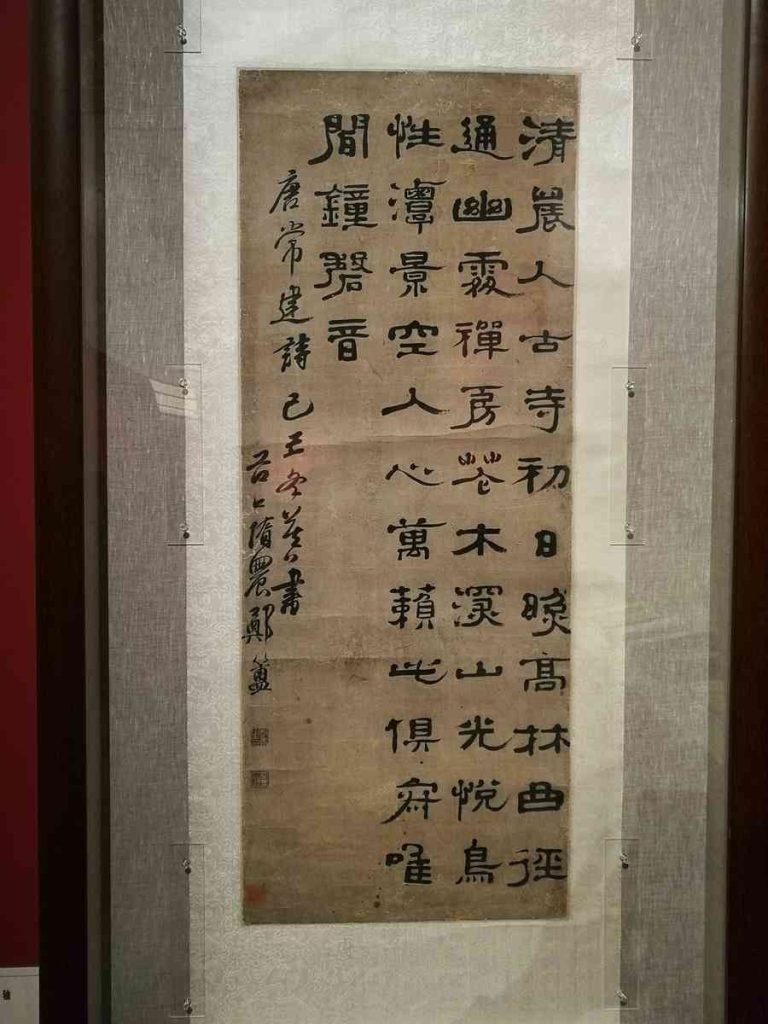 清晨入古寺初日映高林曲徑
通幽處禪房花木深山光悅鳥
性潭景空人心萬籟此俱寂唯
聞鐘磬音
唐常建詩己丑冬暮書
谷口惰農鄭簠